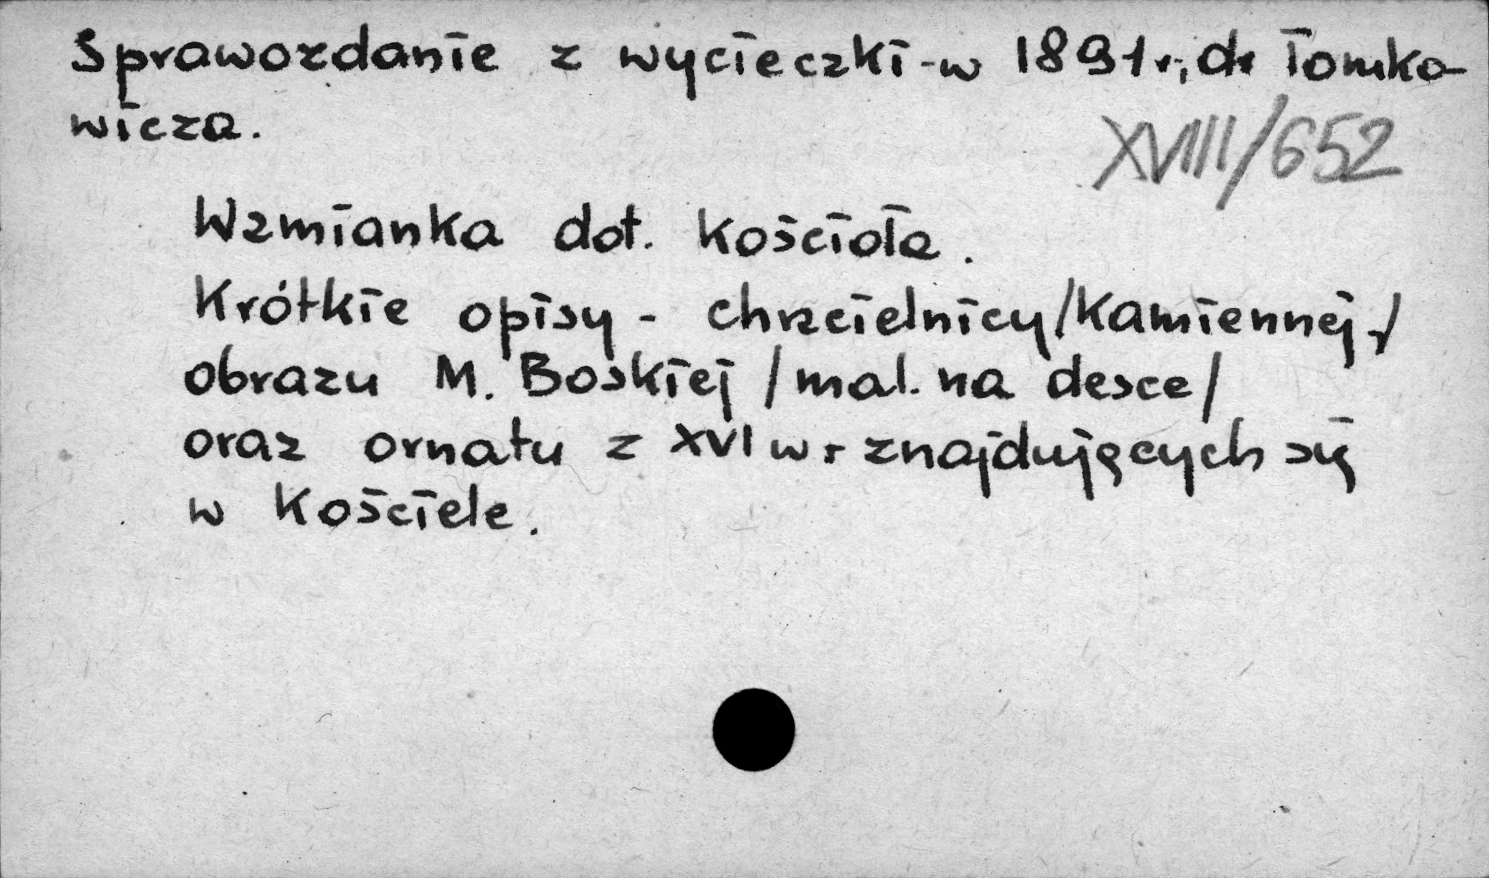 Sprawozdanie z wycieczki - w 1891 r., dr Tomko-
wicza.
XVIII/652
Wzmianka dot. kościoła.
Krótkie opisy - chrzcielnicy /kamiennej./
obrazu M. Boskiej /mal. na desce/
oraz ornatu z XVI w. - znajdujących się
w kościele.